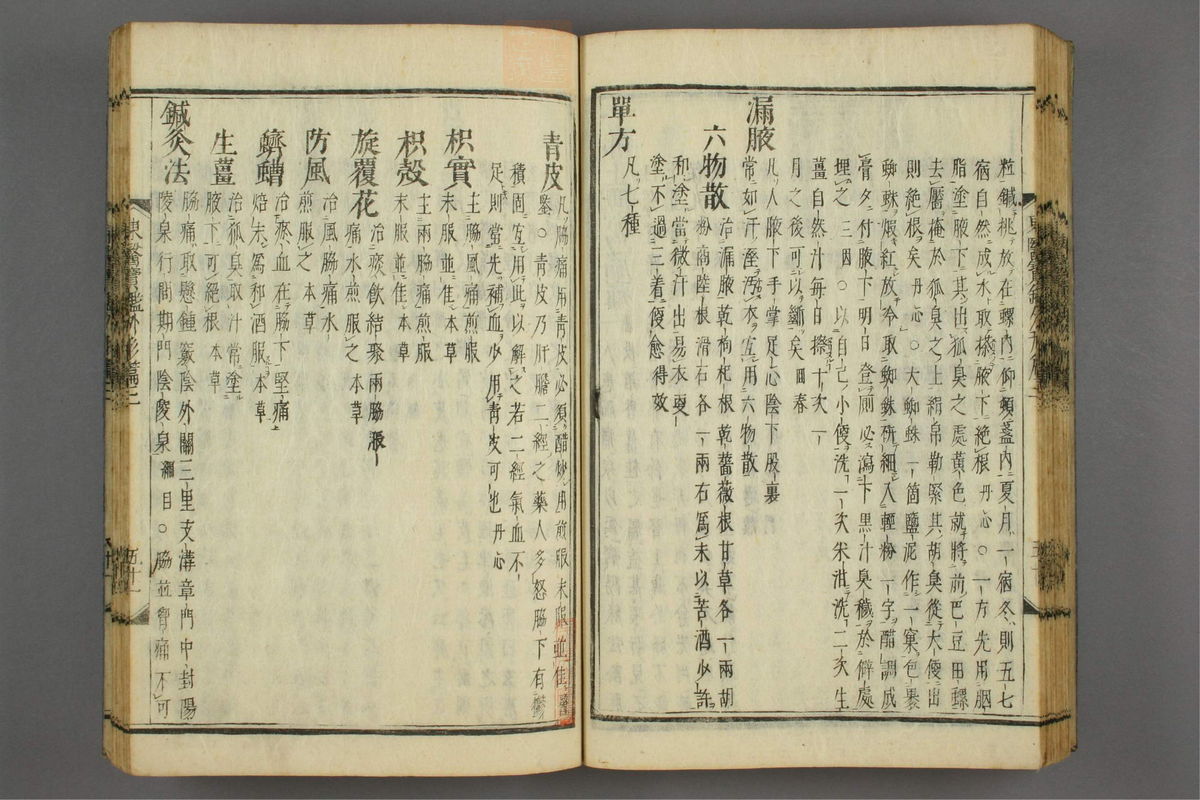 粒鍼挑放在螺內仰頓盞內夏月一宿冬則五七
宿自然成水取搽腋下絕根丹心○一方先用胭
脂塗腋下其出狐臭之處黃色就將前巴豆田螺
去靨掩於狐臭之上絹帛勒緊其胡臭從大便出
則絕根矣丹心○大蜘蛛一箇鹽泥作一窠包裹
蜘蛛煆紅放冷取蜘蛛硏細入輕粉一字醋調成
膏夕付腋下明日登厠必瀉下黑汁臭穢於僻處
埋之三因○以自己小便洗一次米泔洗二次生
薑自然汁每日搽十次一
月之後可以斷矣回春
漏腋
凡人腋下手掌足心陰下股裏
常如汗濕污衣宜用六物散
六物散
治漏腋乾枸杞根乾薔薇根甘草各一兩胡
粉商陸根滑石各一兩右爲末以苦酒少許
和塗當微汁出易衣更
塗不過三着便愈得效
單方
凡七種
青皮
凡脇痛用青皮必須醋炒用煎服末服並佳醫
鑒○青皮乃肝膽二經之藥人多怒脇下有鬱
積固宜用此以解之若二經氣血不
足則當先補血少用青皮可也丹心
枳實
主脇風脇痛煎服
末服並佳本草
枳殼
主兩脇痛煎服
末服並佳本草
旋覆花
治痰飮結聚兩脇脹
痛水煎服之本草
防風
治風水脇痛
煎服之本草
蠐螬
治瘀血在脇下堅痛
焙末爲和酒服本草
生薑
治狐臭取汁常塗
腋下可絕根本草
鍼灸法
脇痛取懸鍾竅陰外關三里支溝章門中封陽
陵泉行間期門陰陵泉綱目○脇並脅痛不可
東醫寶鑑外形篇三
五十一